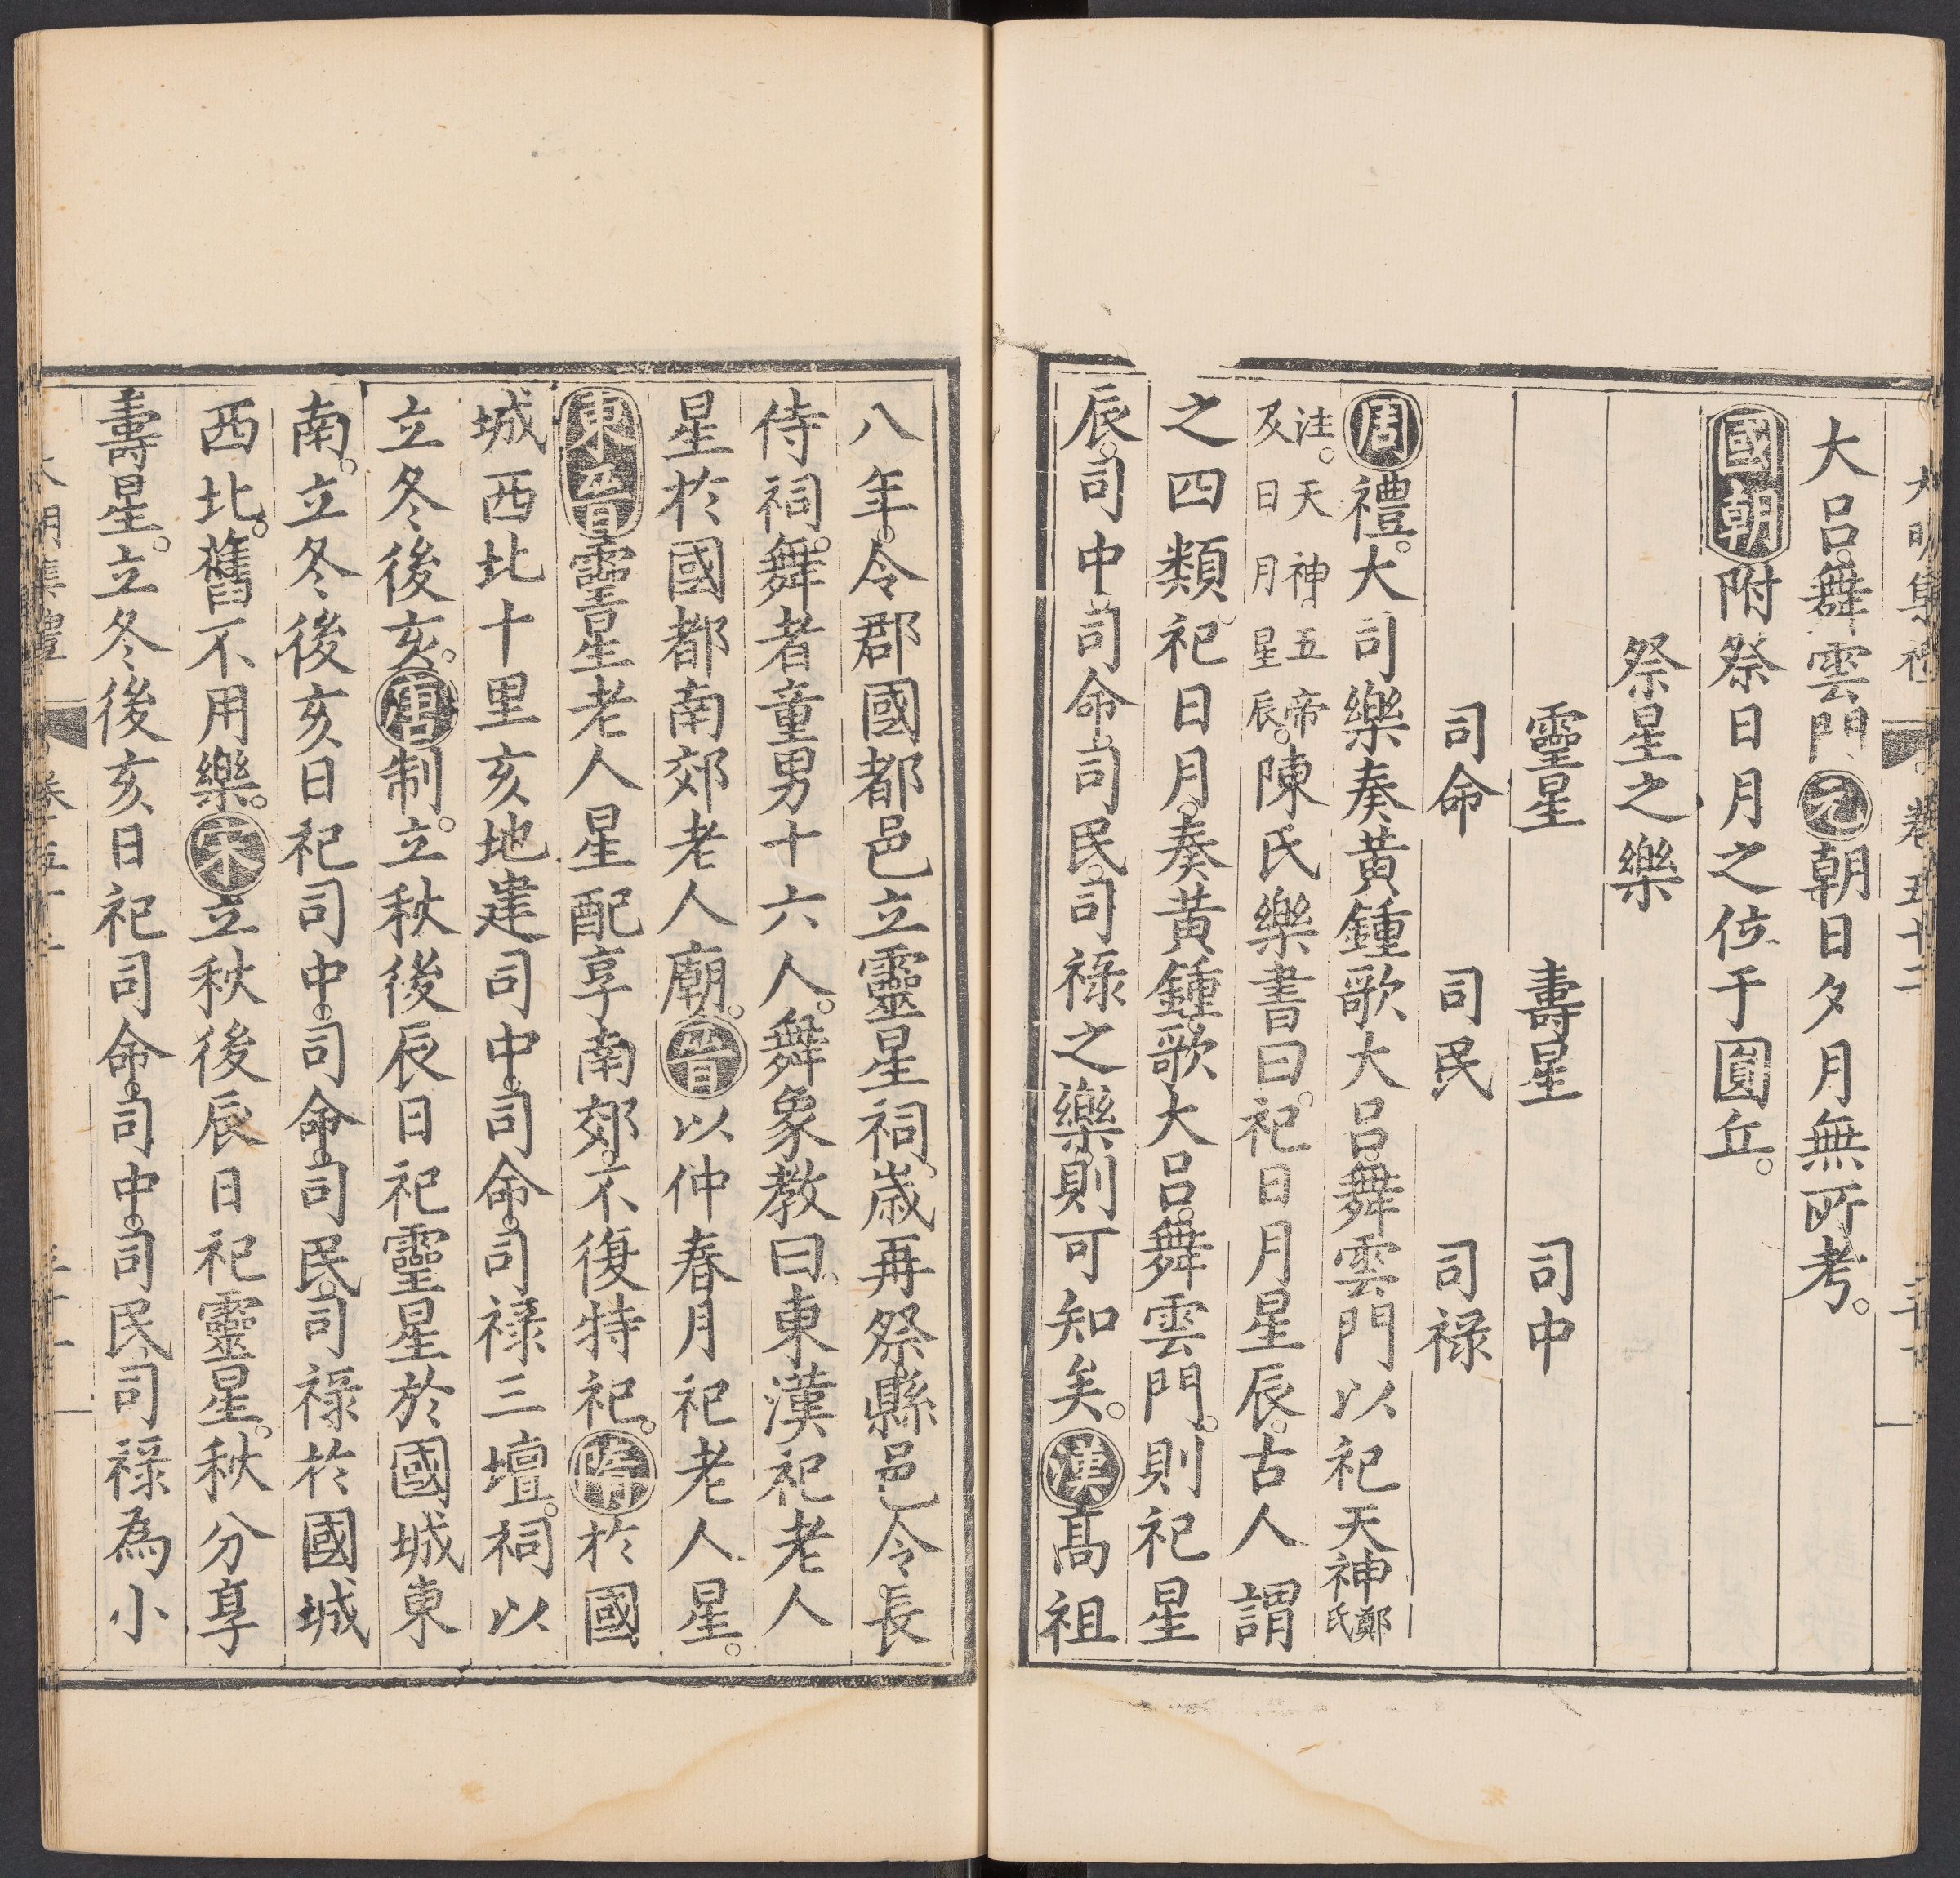 大明集禮 卷五十二
大呂。舞雲門元朝日夕月無所考。
國朝附祭日月之位于圓丘。
祭星之樂
靈星 壽星 司中
司命 司民 司祿
周禮。大司樂奏黃鍾歌大呂。舞雲門以祀天神鄭氏
注。天神。五帝及日月星辰。陳氏樂書曰。祀日月星辰。古人謂
之四類。祀日月。奏黃鍾。歌大呂。舞雲門。則祀星
辰。司中。司命。司民。司祿之樂。則可知矣。漢高祖
八年。令郡國都邑立靈星祠。歲再祭。縣邑令長
侍祠。舞者童男十六人。舞象教曰。東漢祀老人
星於國都南郊老人廟。晉以仲春月祀老人星。
東晉靈星老人星配享南郊。不復特祀。隋於國
城西北十里亥地建司中。司命。司祿三壇。祠以
立冬後亥。唐制。立秋後辰日祀靈星於國城東
南。立冬後亥日祀司中。司命。司民。司祿於國城
西北。舊不用樂。宋立秋後辰日祀靈星。秋分享
壽星。立冬後亥日祀司命。司中。司民。司祿為小